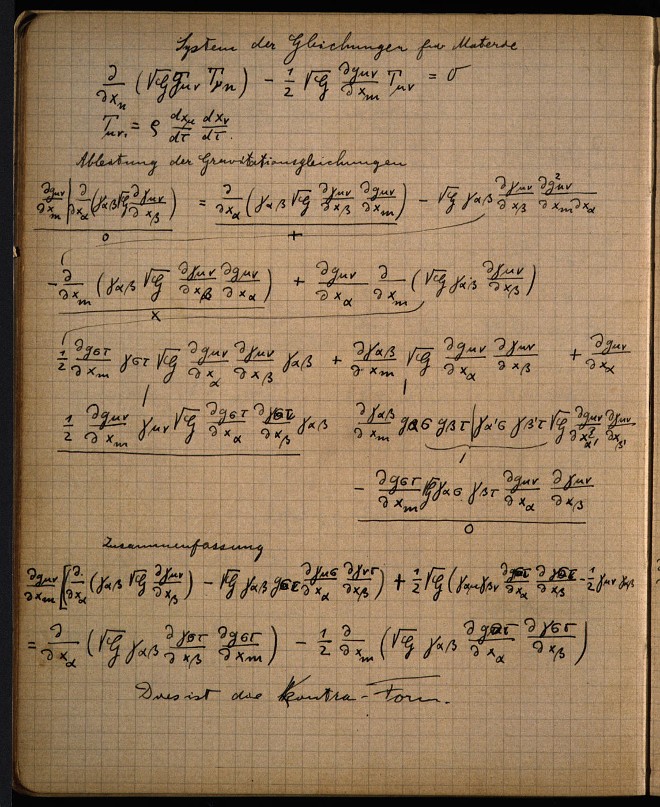 System der Gleichungen für Materie
∂/∂x_n (√G g_μν T_μn) − 1/2 √G ∂g_μν/∂x_m T_μν = 0
T_μν = ρ dx_μ/dτ dx_ν/dτ.
Ableitung der Gravitationsgleichungen
∂g_μν/∂x_m | ∂/∂x_α (γ_αβ √G ∂γ_μν/∂x_β) = ∂/∂x_α (γ_αβ √G ∂γ_μν/∂x_β ∂g_μν/∂x_m) − √G γ_αβ ∂γ_μν/∂x_β ∂²g_μν/∂x_m∂x_α
o +
− ∂/∂x_m (γ_αβ √G ∂γ_μν/∂x_β ∂g_μν/∂x_α) + ∂g_μν/∂x_α ∂/∂x_m (√G γ_αβ ∂γ_μν/∂x_β)
x
1/2 ∂g_στ/∂x_m γ_στ √G ∂g_μν/∂x_α ∂γ_μν/∂x_β γ_αβ + ∂γ_αβ/∂x_m √G ∂g_μν/∂x_α ∂γ_μν/∂x_β + ∂g_μν/∂x_α
1/2 ∂g_μν/∂x_m γ_μν √G ∂g_στ/∂x_α ∂γ_στ/∂x_β γ_αβ ∂γ_αβ/∂x_m g_ασ g_βτ | γ_α'σ γ_β'τ √G ∂g_μν/∂x_α' ∂γ_μν/∂x_β'
− ∂g_στ/∂x_m √G γ_ασ γ_βτ ∂g_μν/∂x_α ∂γ_μν/∂x_β
o
Zusammenfassung
∂g_μν/∂x_m [∂/∂x_α (γ_αβ √G ∂γ_μν/∂x_β) − √G γ_αβ g_στ ∂γ_μσ/∂x_α ∂γ_ντ/∂x_β) + 1/2 √G (γ_αμ γ_βν ∂g_στ/∂x_α ∂γ_στ/∂x_β − 1/2 γ_μν γ_αβ
= ∂/∂x_α (√G γ_αβ ∂γ_στ/∂x_β ∂g_στ/∂x_m) − 1/2 ∂/∂x_m (√G γ_αβ ∂g_στ/∂x_α ∂γ_στ/∂x_β)
Dies ist die Kontra-Form.